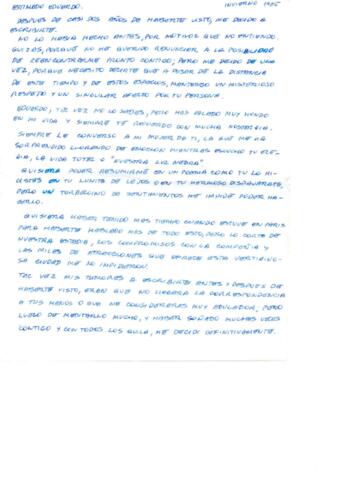 ESTIMADO EDUARDO. INVIERNO 1985
DESPUES DE CASI DOS AÑOS DE HABERTE VISTO, ME DECIDO A
ESCRIBIRTE.
NO LO HABIA HECHO ANTES, POR MOTIVOS QUE NO ENTIENDO.
QUIZAS, PORQUE NO HE QUERIDO RENUNCIAR A LA POSIBILIDAD
DE REENCONTRARME PRONTO CONTIGO, PERO ME DECIDO DE UNA
VEZ, PORQUE NECESITO DECIRTE QUE A PESAR DE LA DISTANCIA
DE ESTE TIEMPO Y DE ESTOS ESPACIOS, MANTENGO UN MISTERIOSO
RESPETO Y UN SINGULAR AFECTO POR TU PERSONA.
EDUARDO, TAL VEZ NO LO SABES, PERO HAS CALADO MUY HONDO
EN MI VIDA Y SIEMPRE TE RECUERDO CON MUCHA NOSTALGIA.
SIEMPRE LE CONVERSO A MI MUJER DE TI, LA QUE ME HA
SORPRENDIDO LLORANDO DE EMOCION MIENTRAS ESCUCHO TU
LA VIDA TOTAL O "NUESTRA LUZ NEGRA"
QUISIERA PODER RESUMIRME EN UN POEMA COMO TU LO HI-
CISTES EN TU LUNITA DE LEJOS O EN TU HERMOSO DISPARATE,
PERO UN TORBELLINO DE SENTIMIENTOS ME IMPIDE PODER HA-
CERLO.
QUISIERA HABER TENIDO MAS TIEMPO CUANDO ESTUVE EN PARIS
PARA HABERTE HABLADO MAS DE TODO ESTO, PERO LO CORTO DE
NUESTRA ESTADIA, LOS COMPROMISOS CON LA COMPAÑIA Y
LAS MILES DE ATRACCIONES QUE OFRECE ESTA
CIUDAD ME LO IMPIDIERON.
TAL VEZ MIS TEMORES A ESCRIBIRTE ANTES Y DESPUES DE
HABERTE VISTO, ERAN QUE NO LLEGARA LA CORRESPONDENCIA
A TUS MANOS O QUE ME CONSIDERARAS MUY ADULADOR, PERO
LUEGO DE MEDITARLO MUCHO, Y HABER SOÑADO MUCHAS VECES
CONTIGO Y CON TODOS LOS QUILA, ME DECIDI DEFINITIVAMENTE.